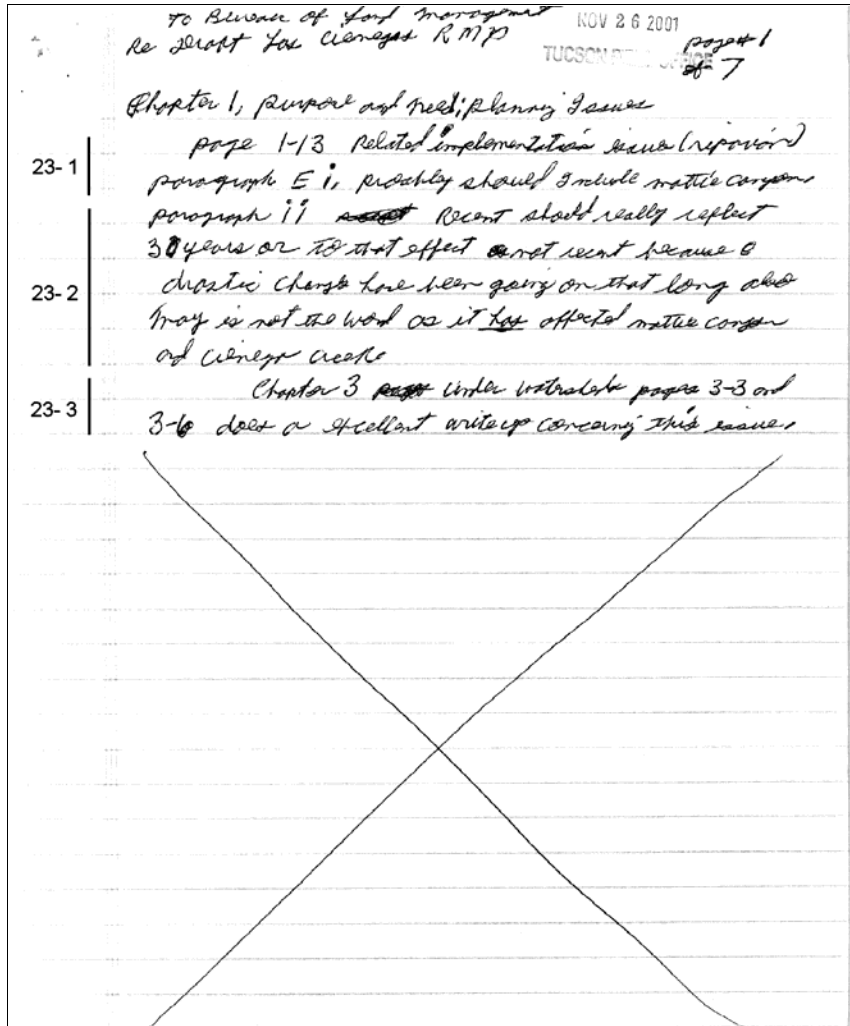 To Bureau of Land Management
NOV 26 2001
Re Draft Las Cienegas RMP
page # 1
TUCSON FIELD OFFICE
of 7
Chapter 1, purpose and need; planning Issues
23-1
page 1-13 Related implementation issue (riparian)
paragraph E i, probably should Include mattie canyon,
paragraph ii Recent should really reflect
23-2
30 years or to that effect not recent because
drastic change have been going on that long also
may is not the word as it has affected mattie canyon
and cienega creek.
23-3
Chapter 3 under watersheds pages 3-3 and
3-6 does a excellent write up concerning this issue,